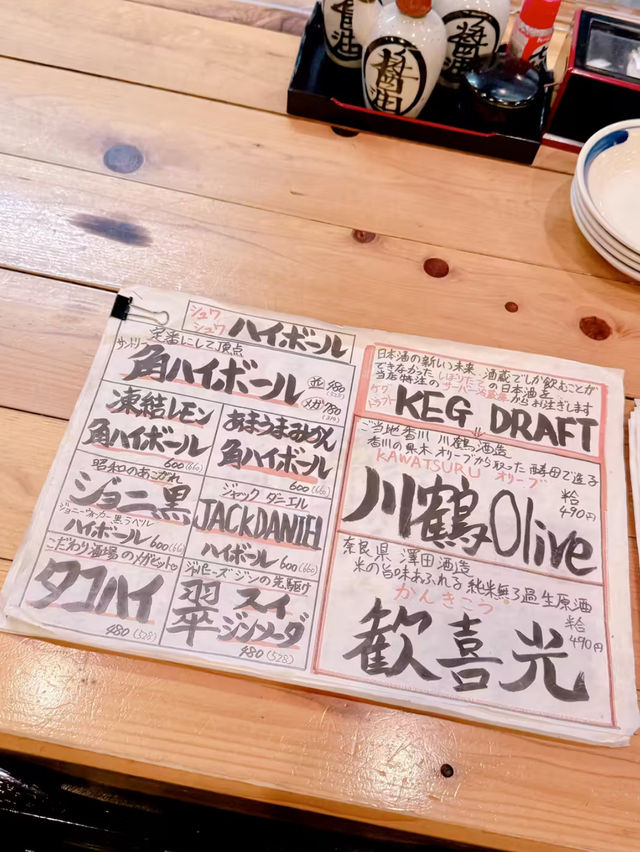 醤油
醤油
醤油
シュワシュワ ハイボール
定番にして頂点
サントリー 角ハイボール
並 480 (528)
メガ 780
凍結レモン
角ハイボール
600 (660)
あまうまみかん
角ハイボール
600 (660)
昭和のあこがれ
ジョニ黒
ジョニーウォーカー黒ラベル
ハイボール 600 (660)
ジャック ダニエル
JACKDANIEL
ハイボール 600 (660)
こだわり酒場のメガヒット
タコハイ
480 (528)
ジャパニーズジンの先駆け
翠 スイ
ジンソーダ
480 (528)
日本酒の新しい未来 酒蔵でしか飲むことが
できなかった しぼりたて の日本酒を
当店特注の サーバー からお注ぎします
ケグ
ドラフト KEG DRAFT
ご当地 香川 川鶴酒造
香川の県木 オリーブから取った 酵母で造る
KAWATSURU オリーブ
川鶴 Olive
490円
奈良県 澤田酒造
米の旨味あふれる 純米無ろ過生原酒
かんきこう
歓喜光
490円